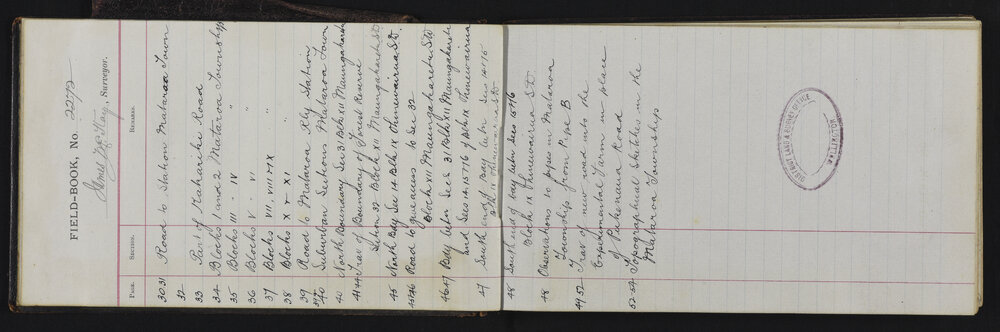 FIELD-BOOK, No. 2272
James McKay, Surveyor.
PAGE. SECTION. REMARKS.
30 31 Road to Station Mataroa Town
32 " " "
33 Part of Kaikarike Road
34 Blocks 1 and 2 Mataroa Township
35 Blocks III " IV "
36 Blocks V " VI "
37 Blocks VII, VIII + IX "
38 Blocks X + XI "
39 Road to Mataroa Rly Station
Suburban Sections Mataroa Town
40 North Boundary Sec 31 Blk XII Maungakaretu
41 44 Trav of Boundary of Forest Reserve
Section 32 Block XII Maungakaretu SD
45 North Bdy Sec 14 Blk IX Ohinewairua SD.
45 & 46 Road to give access to Sec 32
Block XII Maungakaretu SD
46 47 Bdy betn Secs 31 Blk XII Maungakaretu
and Secs 14, 15 & 16 of Blk IX Ohinewairua
47 South end of Bdy betn Secs 14 & 16
Blk IX Ohinewairua SD
48 South end of bdy betn Secs 15 & 16
Block IX Ohinewairua SD
48 Observations to pipes in Mataroa
Township from Pipe B
49 52 Trav of new road into the
Experimental Farm in place
of Pukenaua Road
52-54 Topographical Sketches in the
Mataroa Township
DISTRICT LAND & SURVEY OFFICE
WELLINGTON